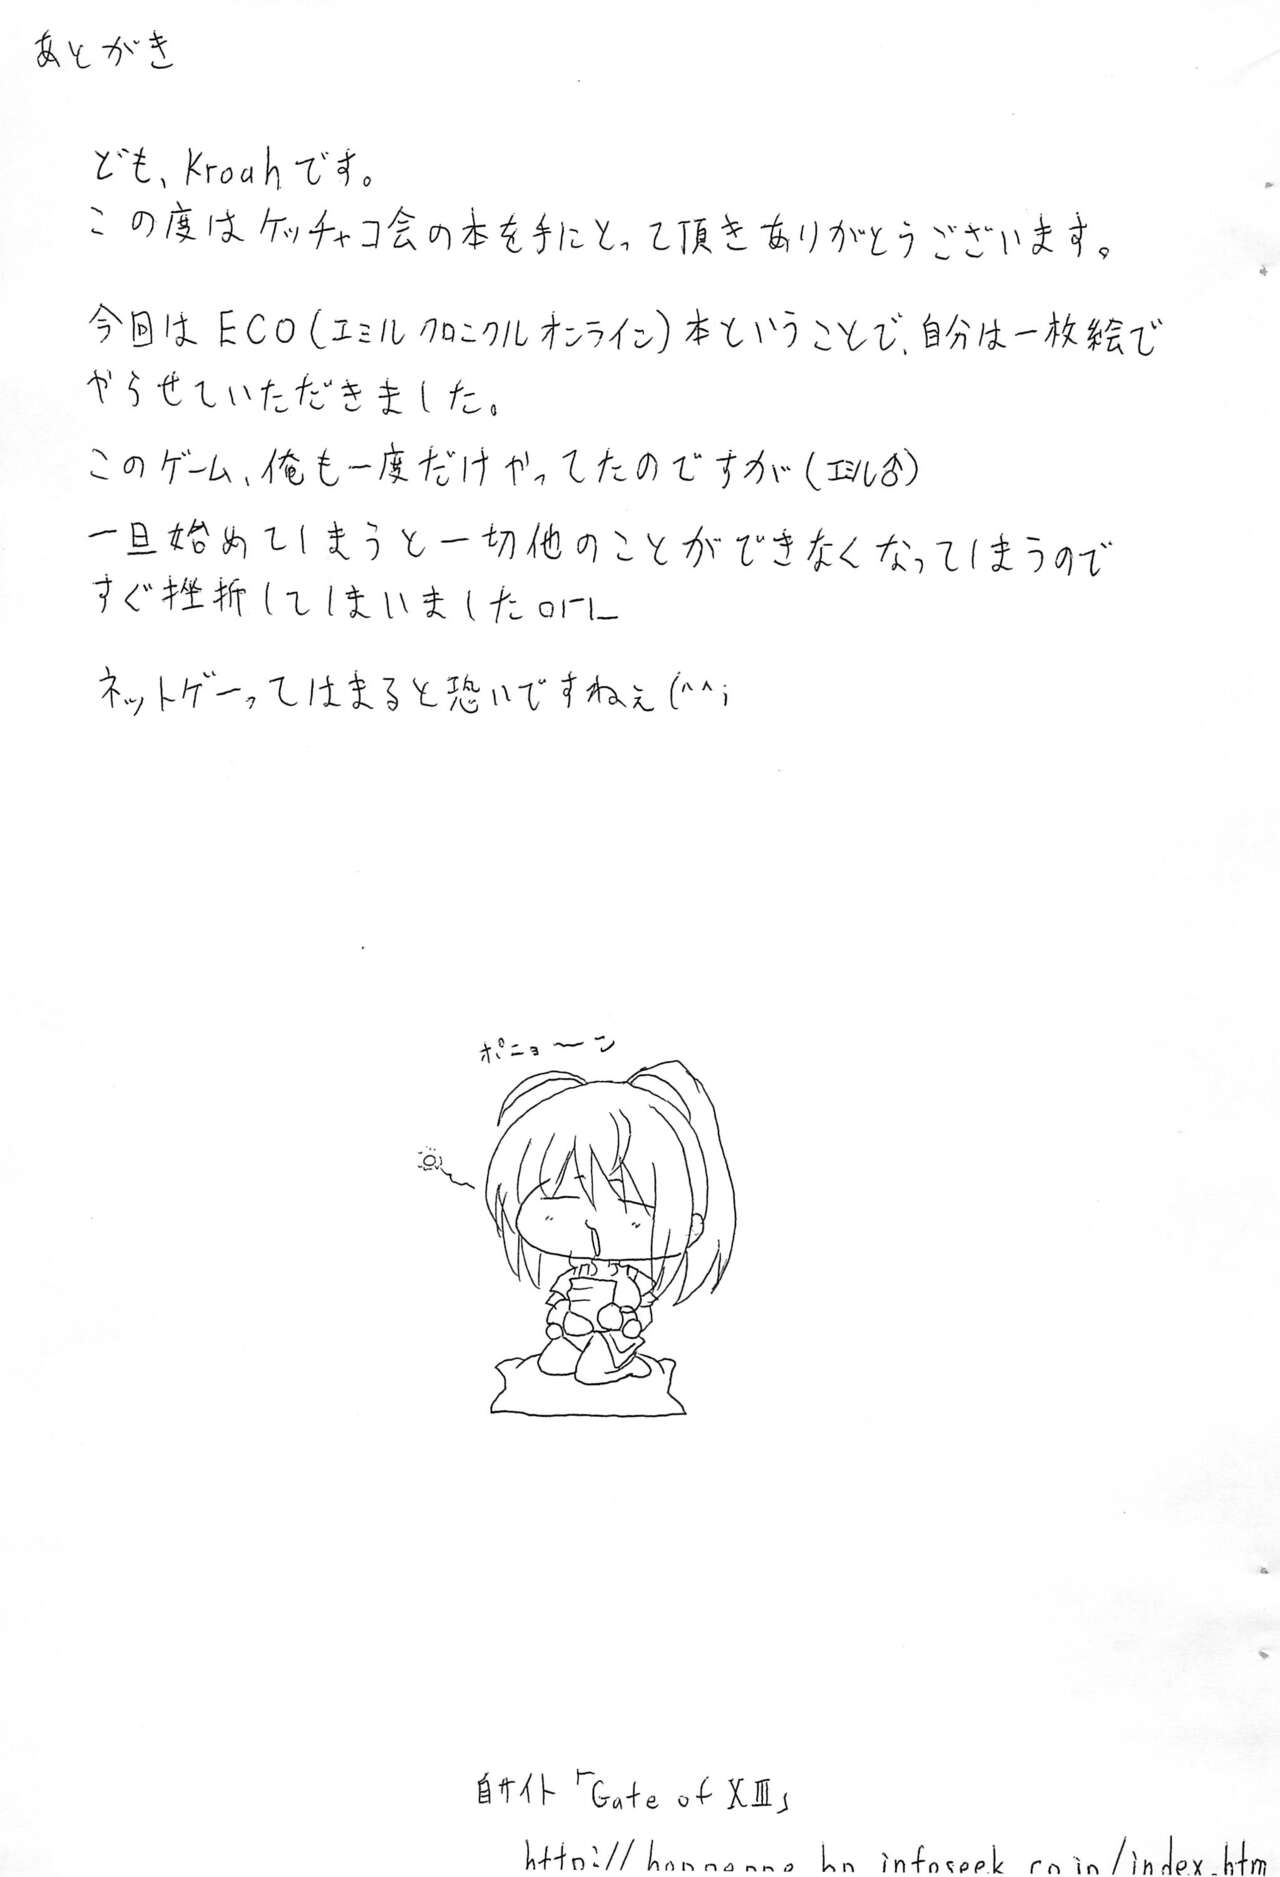 あとがき
ども、Kroahです。
この度はケッチャコ会の本を手にとって頂きありがとうございます。
今回はECO(エミルクロニクルオンライン)本ということで、自分は一枚絵で
やらせていただきました。
このゲーム、俺も一度だけやってたのですが(エミル♂)
一旦始めてしまうと一切他のことができなくなってしまうので
すぐ挫折してしまいましたorL
ネットゲーってはまると恐いですねぇ(^^;
ポニョ〜ン
自サイト「Gate of XIII」
http:// infoseek.co.jp/index.htm